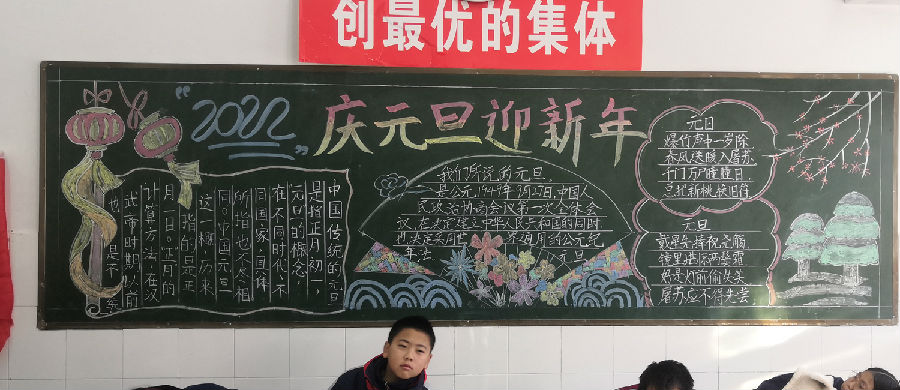 创最优的集体
“2022”
庆元旦迎新年
中国传统的元旦
是指正月初一,
“元旦”的概念,
在不同时代、不
同国家、团体
所指也不尽相
同。中国元旦
这一概,历来
指的是正
月一日。正月的
计算方法,在汉
武帝时期以前
也是不
我们所说的元旦,
是公元1949年9月27日,中国人
民政治协商会议第一次全体会
议,在决定建立中华人民共和国的同时
也决定采用世界通用的公元纪
年法
元旦
元日
爆竹声中一岁除
春风送暖入屠苏
千门万户曈曈日
总把新桃换旧符
元旦
戴星先捧祝尧觞
镜里堪惊两鬓霜
好是灯前偷失笑
屠苏应不得先尝